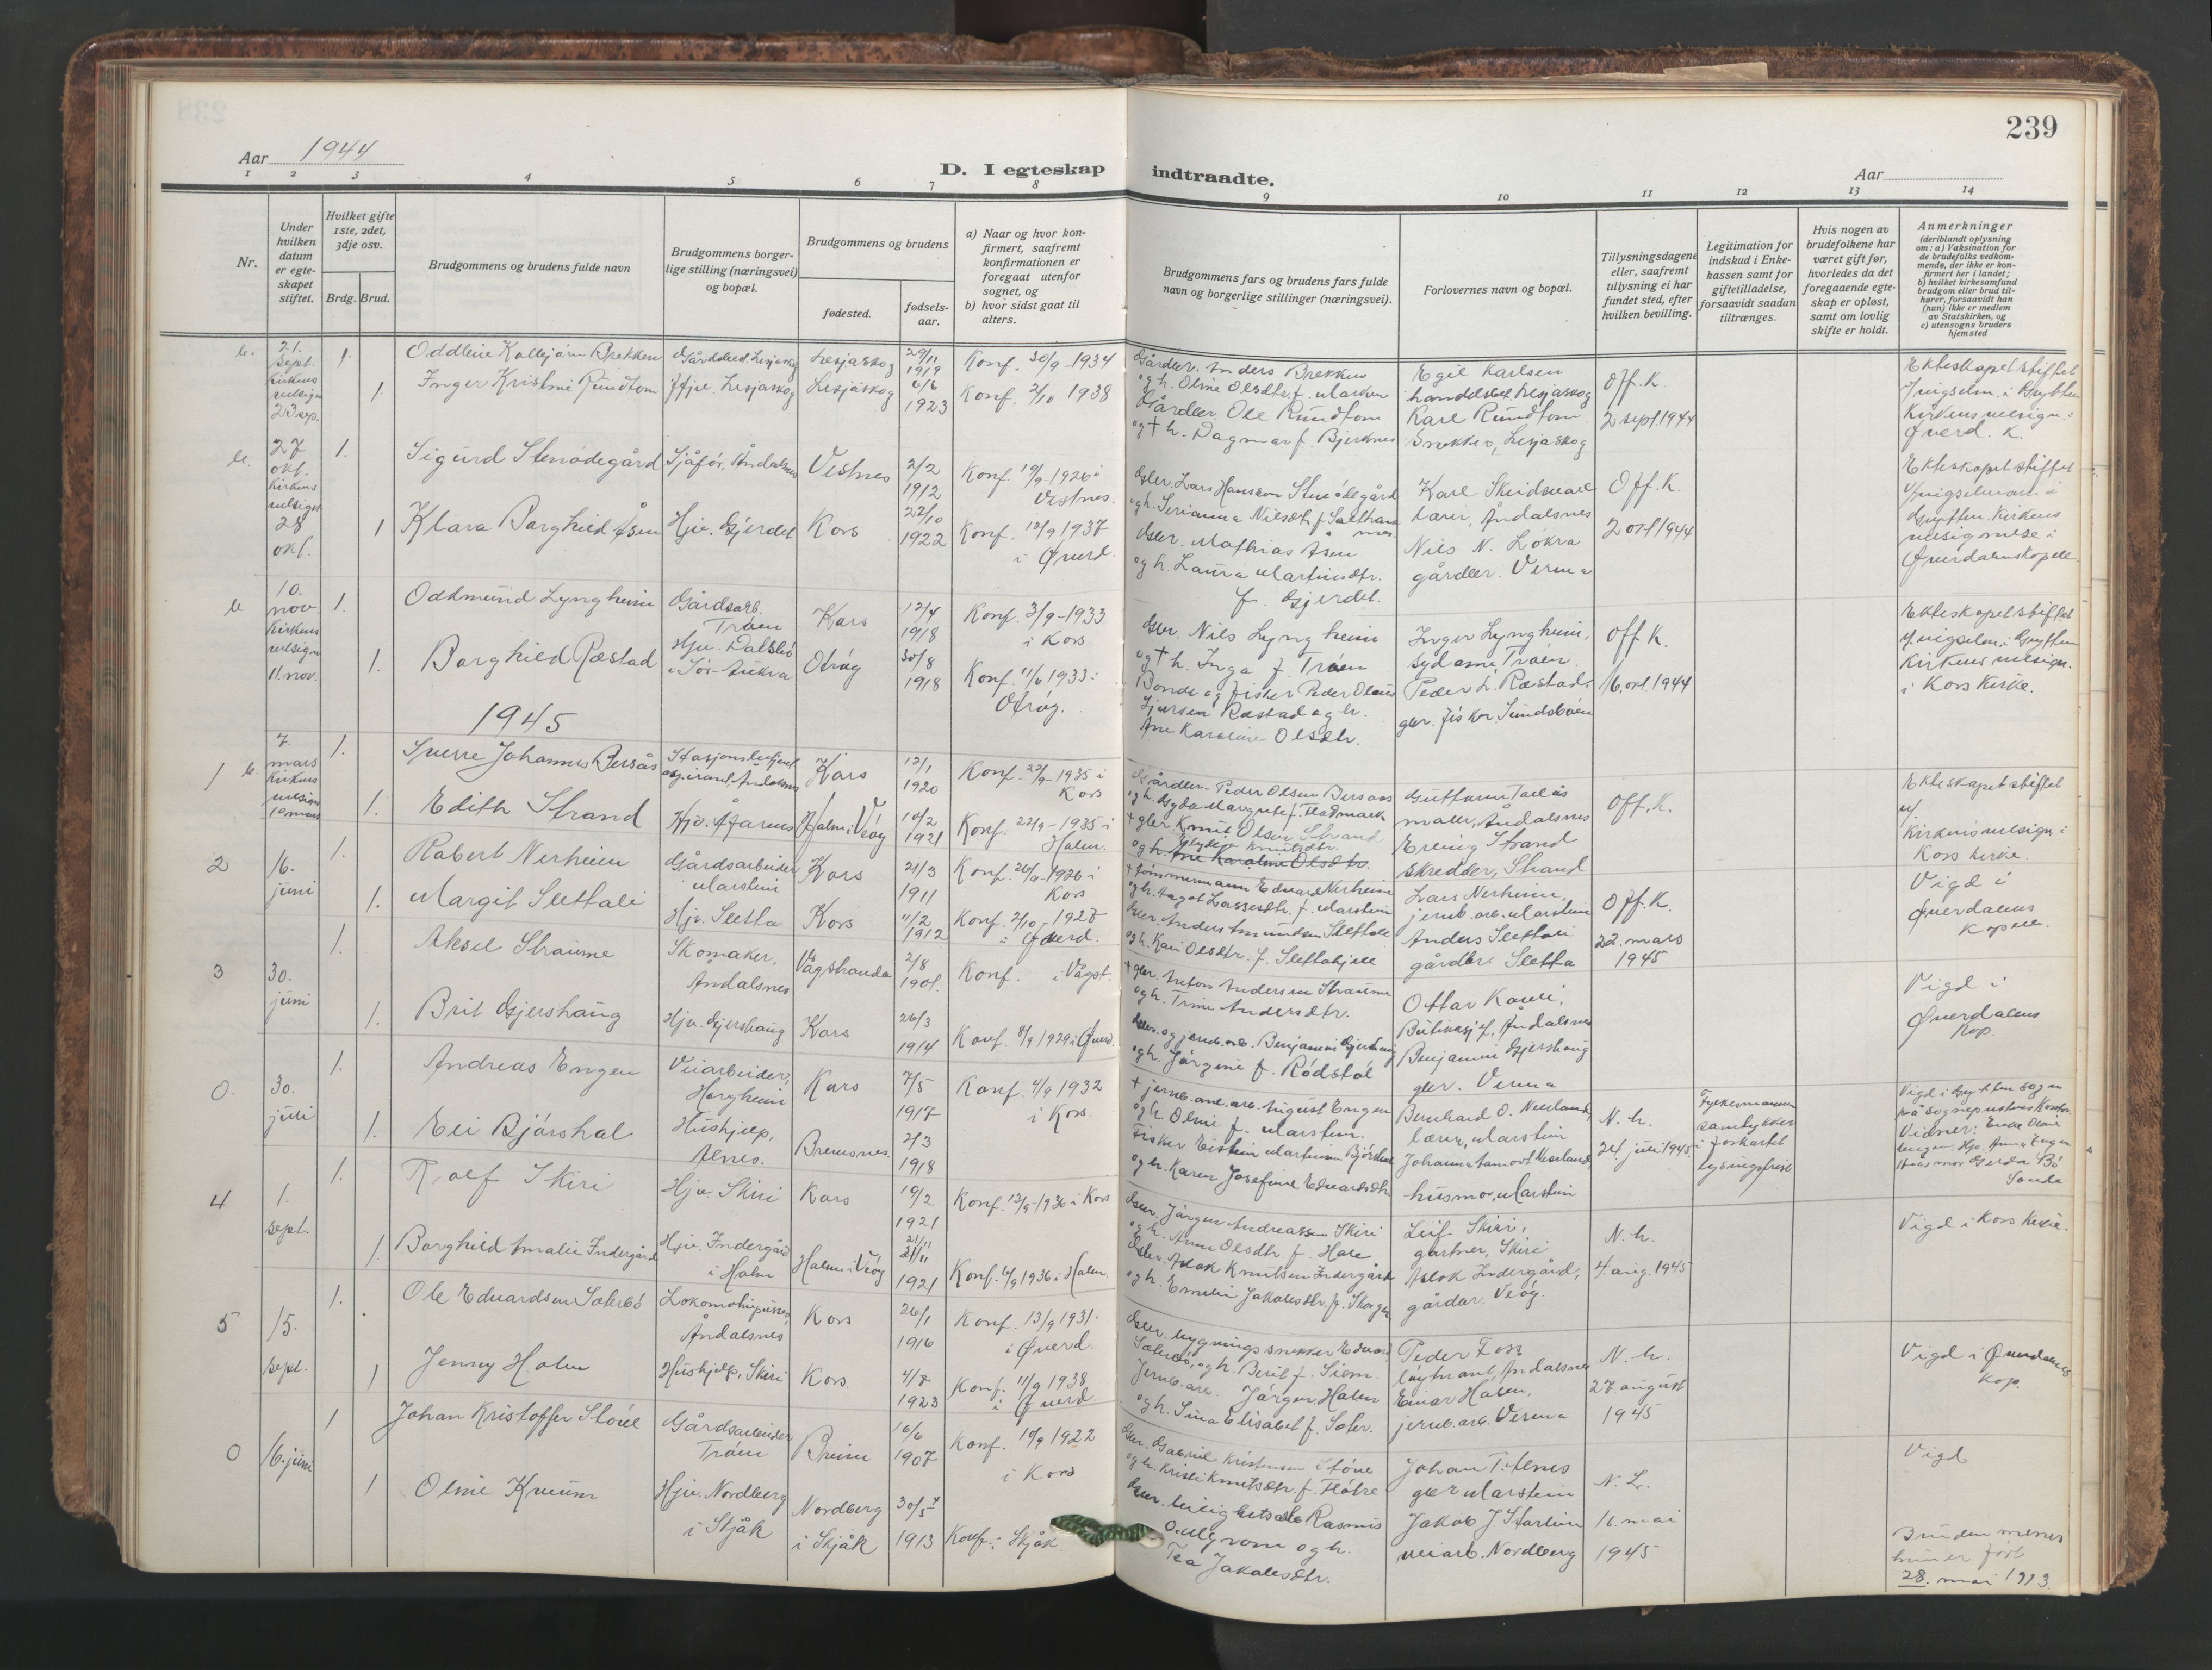 239
Aar 1944
D. I egteskap indtraadte.
Aar
1 2 3 4 5 6 7 8 9 10 11 12 13 14
Nr.
Under hvilken datum er egteskapet stiftet.
Hvilket gifte 1ste, 2det, 3dje osv.
Brdg. Brud.
Brudgommens og brudens fulde navn
Brudgommens borgerlige stilling (næringsvei) og bopæl.
Brudgommens og brudens
fødested.
fødselsaar.
a) Naar og hvor konfirmert, saafremt konfirmationen er foregaat utenfor sognet, og
b) hvor sidst gaat til alters.
Brudgommens fars og brudens fars fulde navn og borgerlige stillinger (næringsvei).
Forlovernes navn og bopæl.
Tillysningsdagene eller, saafremt tillysning ei har fundet sted, efter hvilken bevilling.
Legitimation for indskud i Enkekassen samt for giftetilladelse, forsaavidt saadan tiltrænges.
Hvis nogen av brudefolkene har været gift før, hvorledes da det foregaaende egteskap er opløst, samt om lovlig skifte er holdt.
Anmerkninger
(deriblandt oplysning om: a) Vaksination for de brudefolks vedkommende, der ikke er konfirmert her i landet; b) hvilket kirkesamfund brudgom eller brud tilhører, forsaavidt han (hun) ikke er medlem av Statskirken, og c) utensogns bruders hjemsted
21. sept. kirkens velsign 23 sep.
1. Oddleiv Kollbjørn Brekken
Lesjaskog 29/11 1919 Konf. 30/9-1934
1. Inger Kristine Rundtom
Hjv. Lesjaskog Lesjaskog 6/6 1923 Konf. 2/10 1938
Gårdbr. Anders Brekken
og h. Oline Olsdtr. f.
Gårdbr. Ole Rundtom
og † h. Dagmar f. Bjerknes
Egil Karlsen
Lesjaskog
Karl Rundtom
Snekker, Lesjaskog
Off. K.
2 sept. 1944
Ekteskapet stiftet
Kirkens velsign. i
Øverd. K.
27 okt. Kirkens velsign 28 okt.
1. Sigurd Stenødegård
Sjåfør, Åndalsnes Vestnes 2/2 1912 Konf. 19/9-1926 i Vestnes.
1 Klara Borghild Åsen
Hjv. Gjerdet Kors 22/10 1922 Konf. 12/9 1937 i Øverd.
Gbr. Lars Hansson Stenødegård
Gbr. Mathias Åsen
og h. Laura Martinsdtr.
f. Gjerdet.
Karl Skeidsvoll
lærer, Åndalsnes
Nils N. Lokra
gårdbr. Verma
Off. K.
2 okt 1944
Ekteskapet stiftet
Kirkens
velsignelse i
Øverdalenskapell
10. nov. Kirkens velsign 11. nov.
1. Oddmund Lyngheim
Gårdsarb. Trøen Kors 12/4 1918 Konf. 3/9-1933 i Kors
1. Borghild Ræstad
Hjv. Dalsbø i Sør-Aukra Otrøy 30/8 1918 Konf. 11/6 1933 i Otrøy.
Gbr. Nils Lyngheim
og † h. Inga f. Trøen
Bonde og fisker Peder Olaus
Gjersen Ræstad og h.
Ane Karoline Olsdtr.
Inger Lyngheim,
sydame, Trøen.
Peder L. Ræstad
gbr. fisker Sundsbøen
Off. K.
16. okt. 1944
Ekteskapet stiftet
Kirkens velsign.
i Kors Kirke.
1945
1 7. mars Kirkens velsign 10 mars
1. Sverre Johannes Bersås
Åndalsnes Kors 12/1 1920 Konf. 22/9-1935 i Kors
1. Edith Strand
Holm i Vøy 10/2 1921 Konf. 22/9-1935 i Holm.
Gårdbr. Peder Olsen Bersaas
og h. Gyda Margrete f. Flatmark
† gbr. Knut Olsen Strand
og h. Ane Karoline Olsdtr.
Guttorm Tallås
maler, Åndalsnes
Erling Strand
skredder, Strand
Off. K.
Ekteskapet stiftet
Kirkens velsign i
Kors kirke.
2 16. juni
1. Robert Nerheim
Gårdsarbeider Marstein Kors 21/3 1911 Konf. 26/9-1926 i Kors
1. Margit Slettali
Hjv. Sletta Kors 11/2 1912 Konf. 2/10-1927 i Øverd.
† tømmermann Edvard Nerheim
og h. Lassesdtr. f. Marstein
Gbr. Anders Amundsen Slettali
og h. Kari Olsdtr. f. Slettahjell
Lars Nerheim,
jernb. arb. Marstein
Anders Slettali
gårdbr. Sletta
Off. K.
22. mars
1945
Vigd i
Øverdalens
Kapell.
3 30. juni
1. Aksel Straume
Skomaker, Åndalsnes Vågstranda 2/8 1901. Konf. i Vågst.
1. Brit Gjershaug
Hjv. Gjershaug Kors 26/3 1914 Konf. 8/9 1929 i Øverd.
† gbr. Anton Andersen Straume
og h. Trine Andersdtr.
Gbr. og jernb. arb. Benjamin Gjershaug
og h. Jørgine f. Rødstøl
Ottar Kavli,
Butiksj., Åndalsnes
Benjamin Gjershaug
gbr. Verma
Vigd i
Øverdalens
Kap.
0. 30. juli
1. Andreas Engen
Veiarbeider, Horgheim Kors 7/5 1917 Konf. 4/9 1932 i Kors.
1. Eli Bjørshol
Hushjelp, Alnes. Bremsnes. 2/3 1918
† jernb. anl. arb. August Engen
og h. Oline f. Marstein.
Fisker Eistein Martinsen Bjørshol
og h. Karen Josefine Edvardsdtr
Bernhard O. Neerland,
lærer, Marstein
husmor, Marstein
N. h.
24. juli 1945.
Fylkesmannen
samtykker
i forkortet
lysingsfrist
Vigd i Grytten sogn
på sogneprestens Kontor.
Vidner:
Husmor Gerda Bø
4 1. sept.
1. Rolf Skiri
Hjv. Skiri Kors 10/2 1921 Konf. 13/9-1936 i Kors
1. Borghild Amalie Indergård
Hjv. Indergård i Holm Holm i Vøy 21/11 21/11 1921 Konf. 6/9 1936 i Holm.
Gbr. Jørgen Andreassen Skiri
og h. Anna Olsdtr. f. Hole
Gbr. Aslak Knutsen Indergård
og h. Emelie Jakobsdtr. f. Skorgen
Leif Skiri,
gartner, Skiri
Aslak Indergård,
gårdbr. Vøy.
N. h.
4. aug. 1945
Vigd i Kors Kirke.
5 15. sept.
1. Ole Edvardsen Soterbø
Lokomotivpusser, Åndalsnes Kors 26/1 1916 Konf. 13/9 1931 i Øverd.
1 Jenny Holm
Hushjelp, Skiri Kors. 4/8 1923 Konf. 11/9 1938 i Øverd.
Gbr. bygningssnekker Edvard
og h. Berit f. Siem.
Jernb. arb. Jørgen Holm
og h. Sina Elisabet f. Soter.
Peder Foss
løytnant, Åndalsnes
Einar Holm,
jernb. arb. Verma
N. h.
27. august
1945
Vigd i Øverdalens
Kap.
0 16. juni
1 Johan Kristoffer Støve
Gårdsarbeider Trøen Breim 16/6 1907 Konf. 10/9 1922 i Kors
1 Oline Kveum
Hjv. Nordberg i Skjåk Nordberg i Skjåk 30/5 1913 Konf. i Skjåk
Gbr. Gabriel Kristensen Støve
og h. Kristi Knutsdtr. f. Fløtre
Gbr. Rasmus
og h.
Tea Jakobsdtr.
Johan T. Alnes
gbr Marstein
Jakob J
veiarb. Nordberg
N. L.
16. mai
1945
Vigd
Bruden mener
hun er født
28. mai 1913.